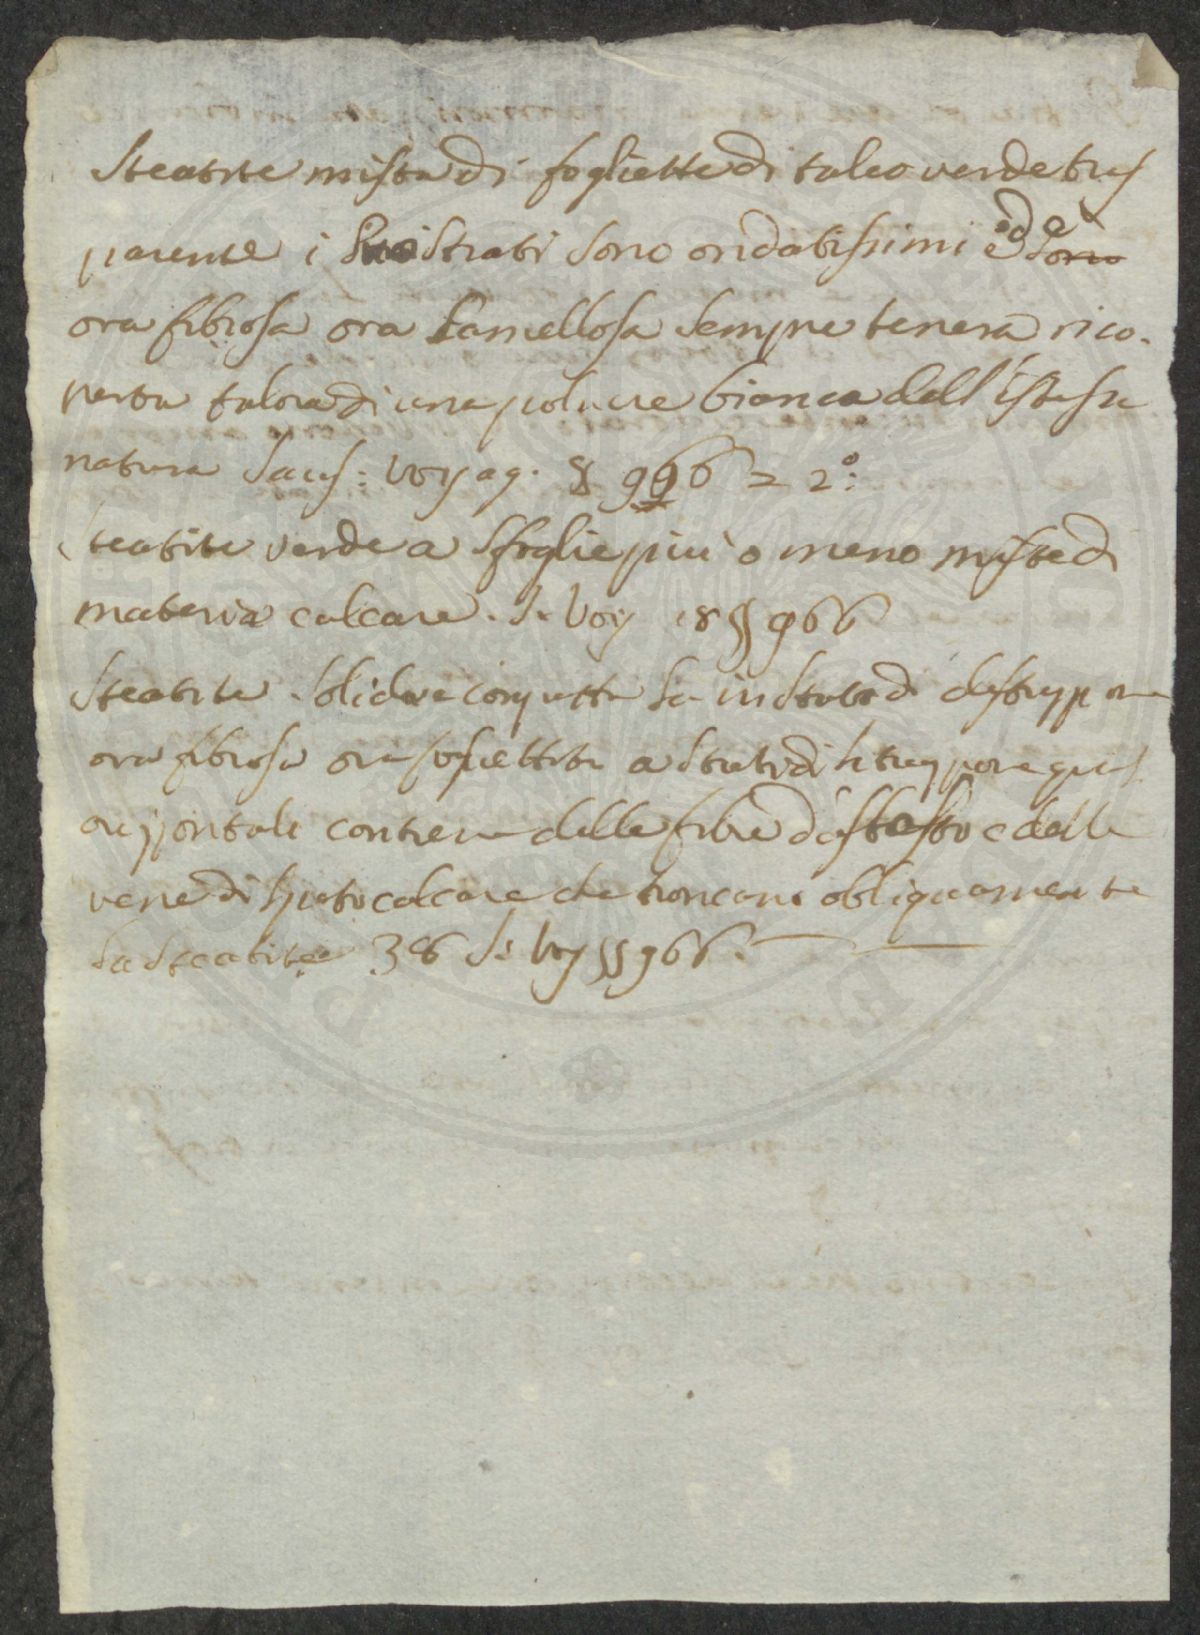 Steatite mista di fogliette di talco verde tras
parente i Suoi Strati sono ondatissimi ed è sono
ora fibrosa ora Lamellosa sempre tenera rico-
perta talora di una polvere bianca dell'istessa
natura Saus: Voyag. § 996 = 2°:
Steatite verde a sfoglie più o meno miste di
materia calcare. S. Voy 18 §§ 966
Steatite solida e compatta
ora fibrosa ora a Strati di
orizzontale contiene delle fibre d'asbesto e delle
vene di Spato calcare che troncano obliquamente
la Steatite 38 S. Voy §§ 966.